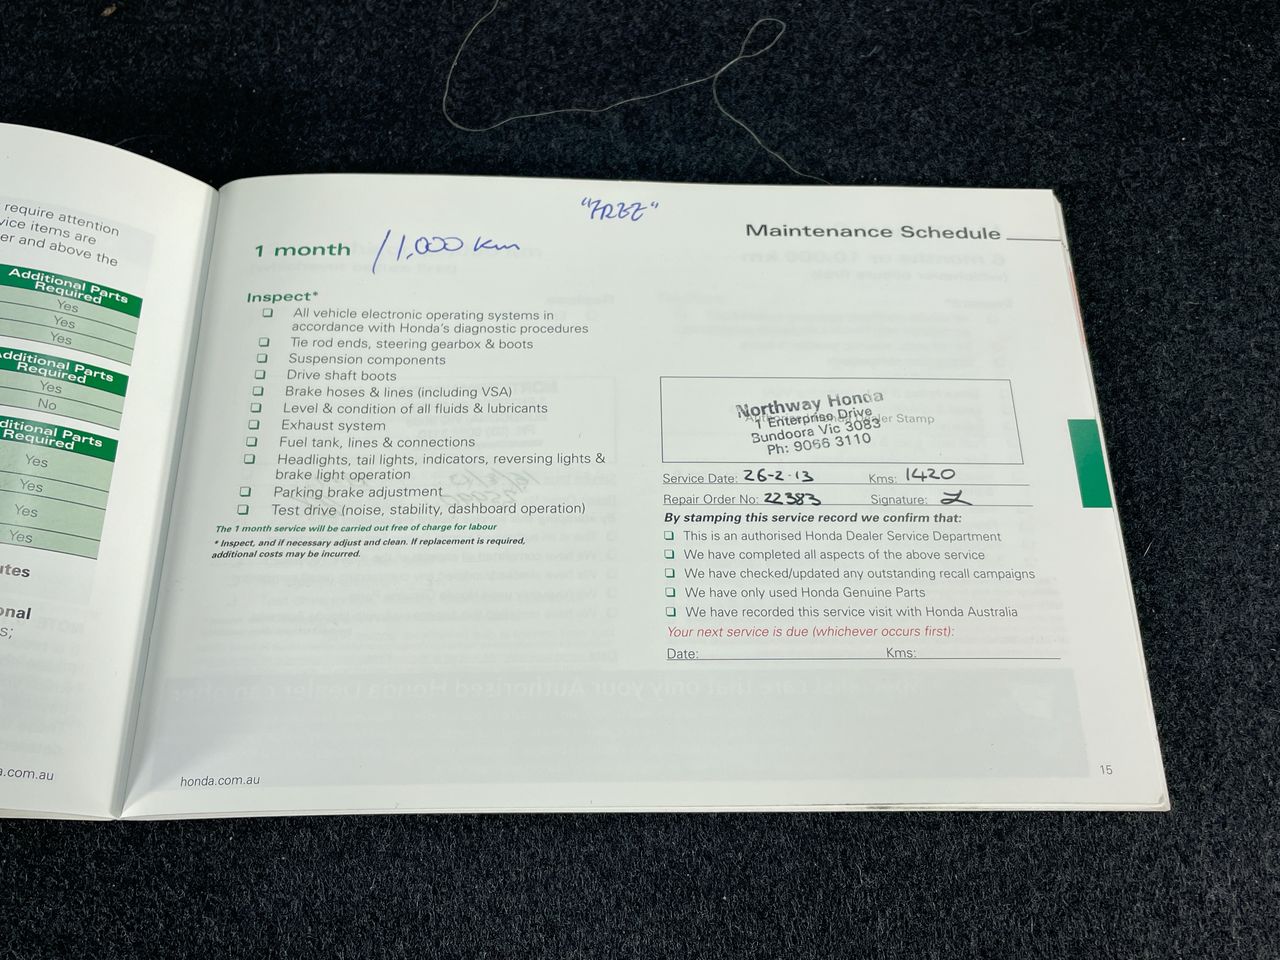 require attention
vice items are
er and above the
Additional Parts
Required
Yes
Yes
Yes
Additional Parts
Required
Yes
No
ditional Parts
Required
Yes
Yes
Yes
Yes
utes
onal
s;
a.com.au
"FREE"
Maintenance Schedule
1 month /1,000 km
Inspect*
❑ All vehicle electronic operating systems in
accordance with Honda's diagnostic procedures
❑ Tie rod ends, steering gearbox & boots
❑ Suspension components
❑ Drive shaft boots
❑ Brake hoses & lines (including VSA)
❑ Level & condition of all fluids & lubricants
❑ Exhaust system
❑ Fuel tank, lines & connections
❑ Headlights, tail lights, indicators, reversing lights &
brake light operation
❑ Parking brake adjustment
❑ Test drive (noise, stability, dashboard operation)
The 1 month service will be carried out free of charge for labour
* Inspect, and if necessary adjust and clean. If replacement is required,
additional costs may be incurred.
Northway Honda
Dealer Stamp
1 Enterprise Drive
Bundoora Vic 3083
Ph: 9066 3110
Service Date: 26-2-13 Kms: 1420
Repair Order No: 22383 Signature:
By stamping this service record we confirm that:
❑ This is an authorised Honda Dealer Service Department
❑ We have completed all aspects of the above service
❑ We have checked/updated any outstanding recall campaigns
❑ We have only used Honda Genuine Parts
❑ We have recorded this service visit with Honda Australia
Your next service is due (whichever occurs first):
Date: Kms:
honda.com.au
15